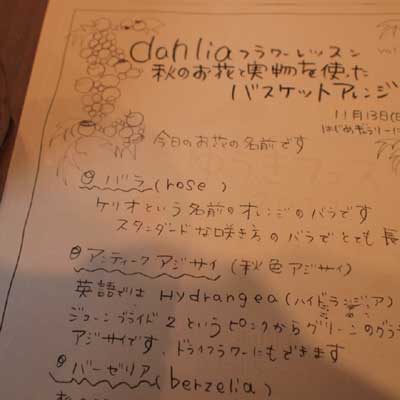 dahlia フラワーレッスン
秋のお花と実物を使った
バスケットアレンジ
11月13日(日
はじめギャラリーに
今日のお花の名前です
バラ (rose)
ケリオという名前のオレンジのバラです
スタンダードな咲き方のバラでとても長
アンティークアジサイ (秋色アジサイ)
英語では Hydrangea (ハイドランジア)
ジューンブライド2というピンクからグリーンのグラ
アジサイです、ドライフラワーにもできます
バーゼリア (berzelia)